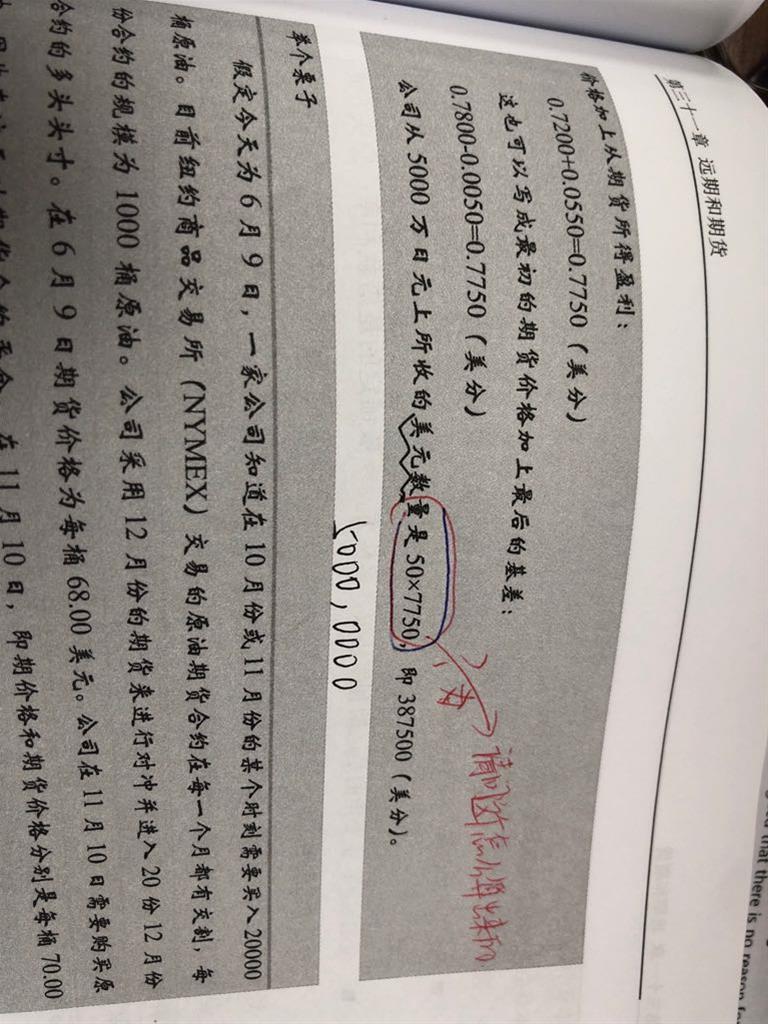 第三十一章 远期和期货
价格加上从期货所得盈利：
0.7200+0.0550=0.7750（美分）
这也可以写成最初的期货价格加上最后的基差：
0.7800-0.0050=0.7750（美分）
公司从 5000 万日元上所收的美元数量是 50×7750，即 387500（美分）。
为
请问这怎么算出来的
5000,0000
举个栗子
假定今天为 6 月 9 日，一家公司知道在 10 月份或 11 月份的某个时刻需要买入 20000
桶原油。目前纽约商品交易所（NYMEX）交易的原油期货合约在每一个月都有交割，每
份合约的规模为 1000 桶原油。公司采用 12 月份的期货来进行对冲并进入 20 份 12 月份
合约的多头头寸。在 6 月 9 日期货价格为每桶 68.00 美元。公司在 11 月 10 日需要购买原
在 11 月 10 日，即期价格和期货价格分别是每桶 70.00
that there is no reason